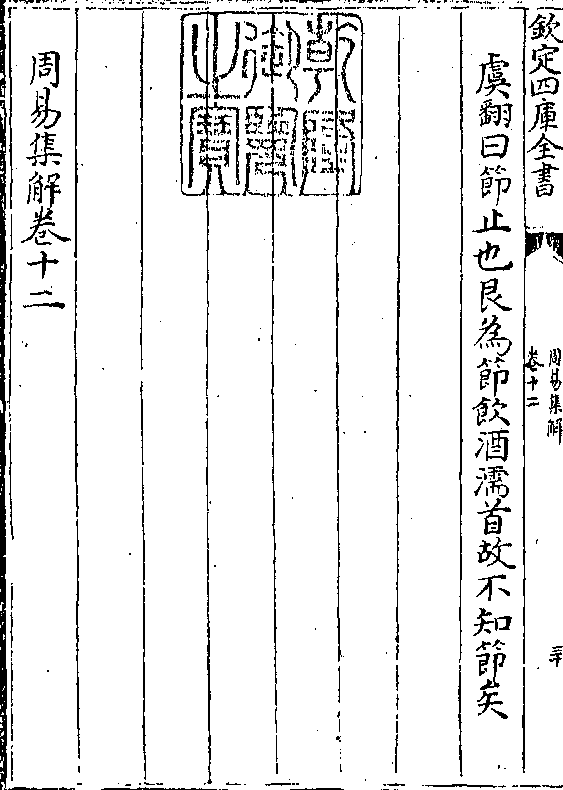 欽定四庫全書
周易集解
卷十二
三十
虞翻曰節止也艮為節飲酒濡首故不知節矣
乾隆御覽之寶
周易集解卷十二